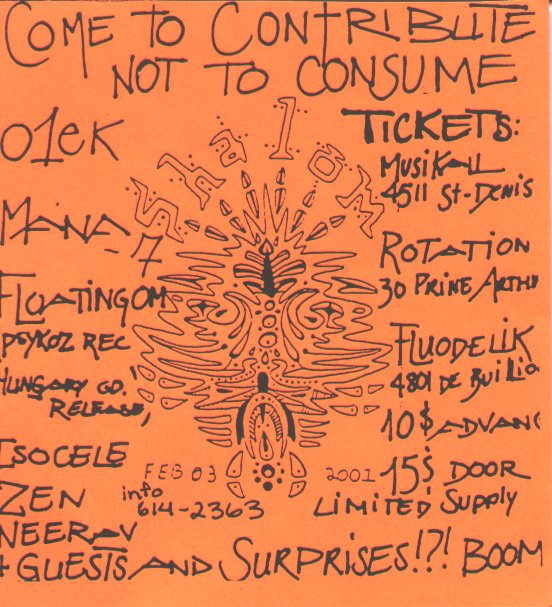 COME TO CONTRIBUTE
NOT TO CONSUME
shalom
o1ek
MANA
7
FLOATINGOM
PSYKOZ REC
HUNGARY CD.'
RELEASE,
ISOCELE
ZEN
NEERAV
+ GUESTS AND SURPRISES!?! BOOM
TICKETS:
MUSIKALL
4511 St-DENIS
ROTATION
30 PRINE ARTHU
FLUODELIK
4801 DE BUILLIO
10$ ADVANC
15$ DOOR
LIMITED SUPPLY
FEB 03 2001
info
614-2363